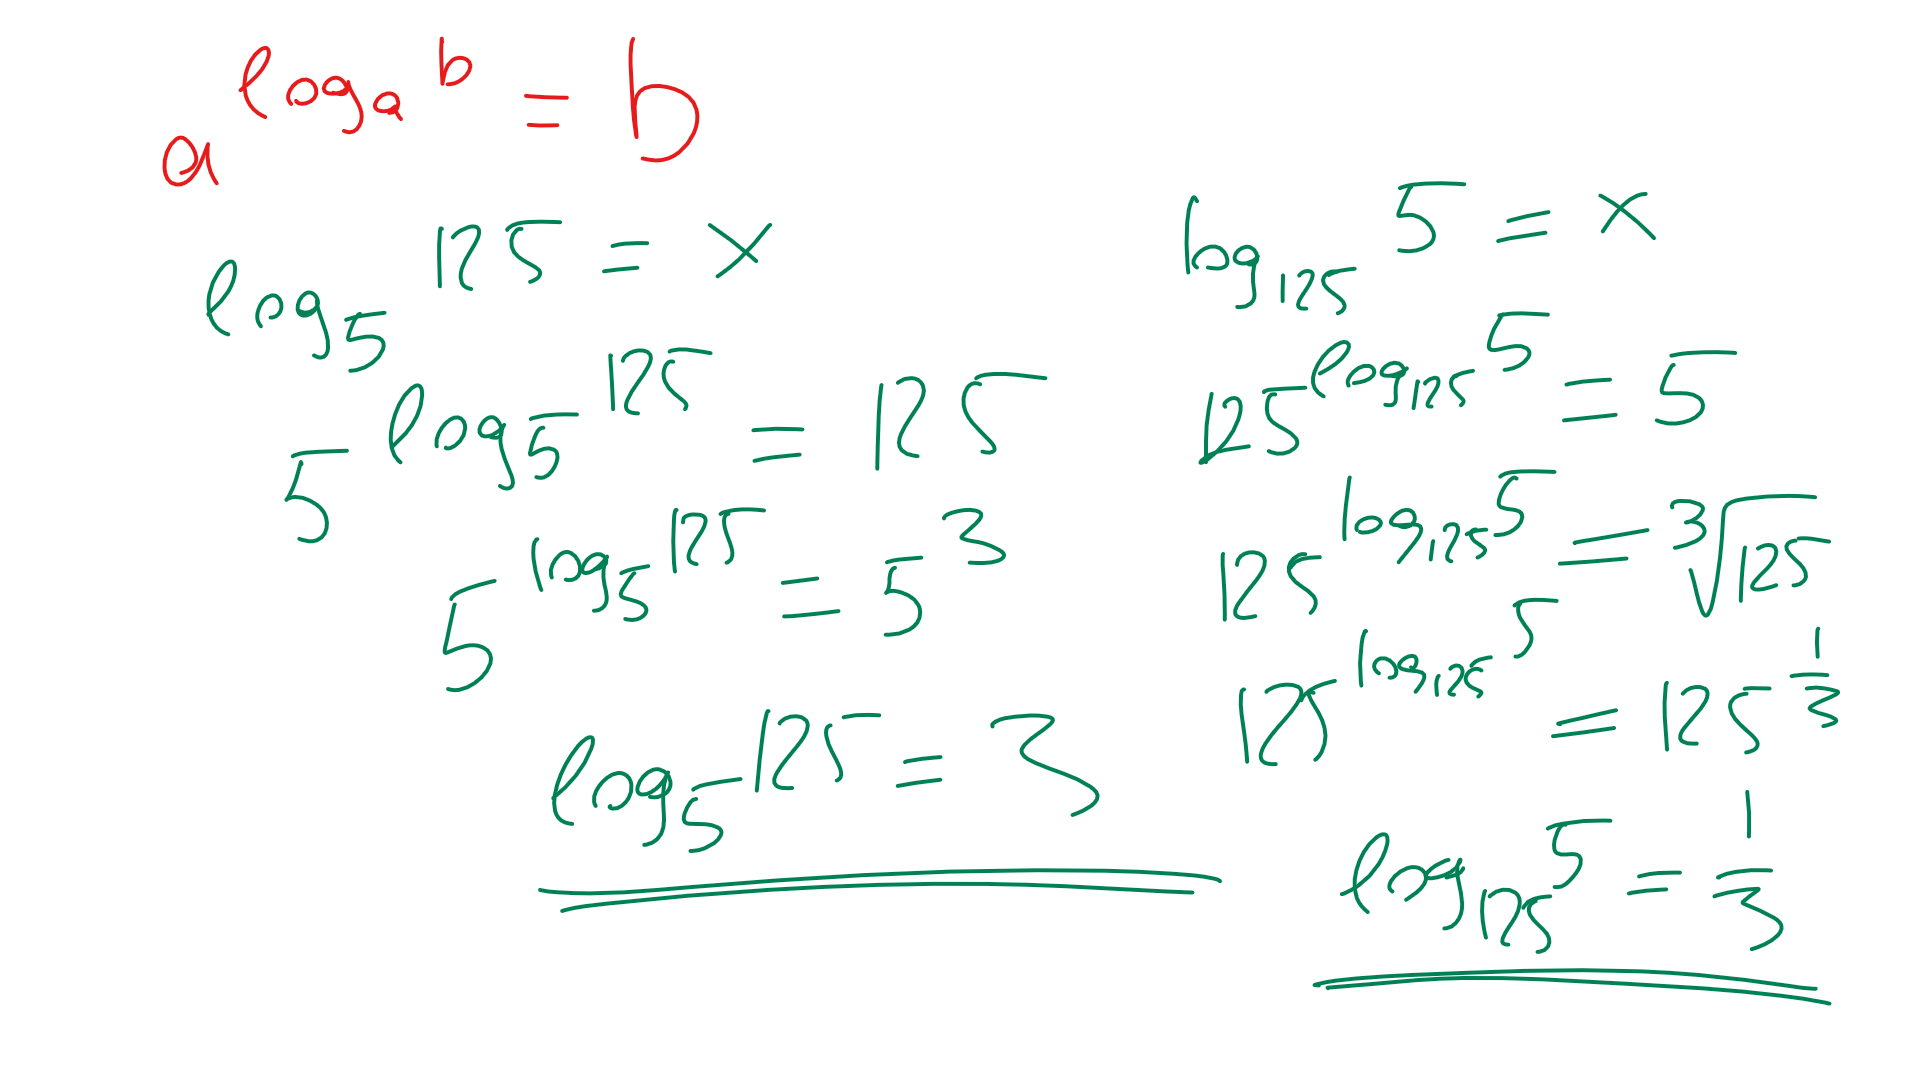 a^{log_a b} = b
log_5 125 = x
5^{log_5 125} = 125
5^{log_5 125} = 5^3
log_5 125 = 3
log_{125} 5 = x
125^{log_{125} 5} = 5
125^{log_{125} 5} = ∛125
125^{log_{125} 5} = 125^{1/3}
log_{125} 5 = 1/3